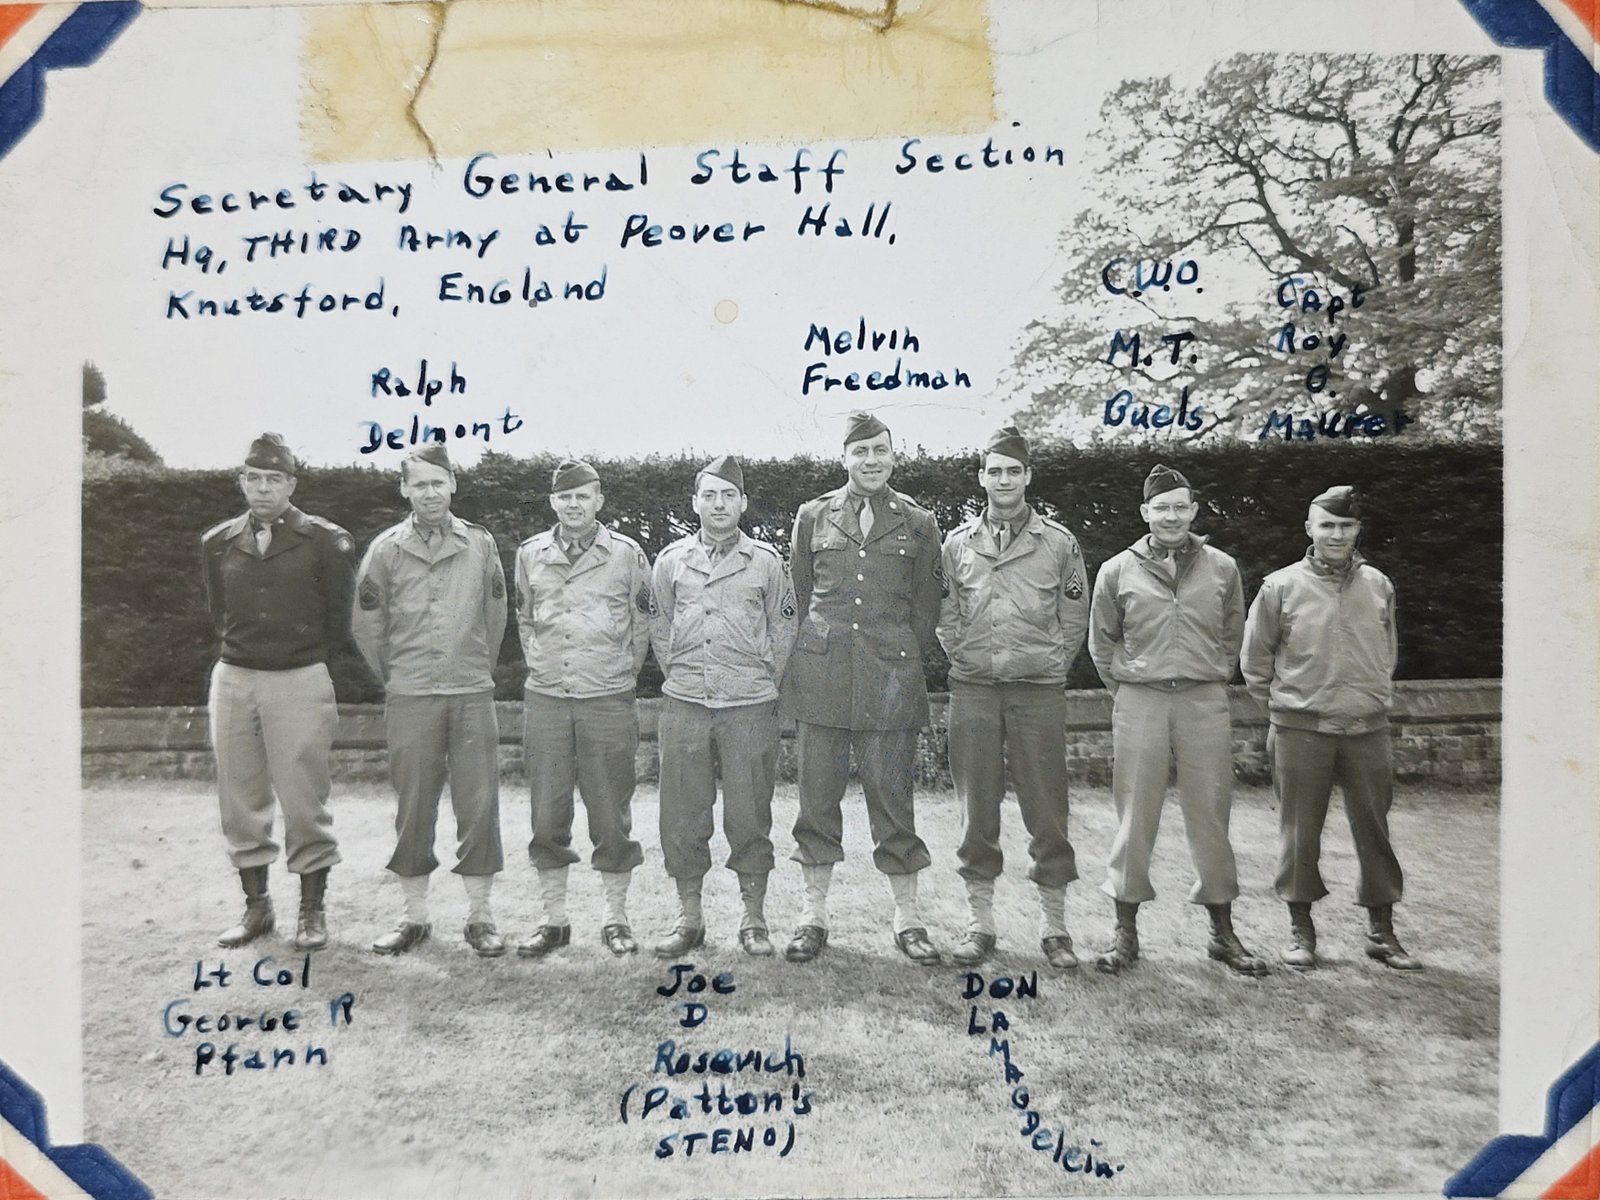 Secretary General Staff Section
Hq, THIRD Army at Peover Hall,
Knutsford, England
Ralph
Delmont
Melvin
Freedman
C.W.O.
M.T.
Buels
Capt
Roy
G.
Maurer
Lt Col
George R
Pfann
Joe
D
Rosevich
(Patton's
STENO)
DON
LAMAGDelein.